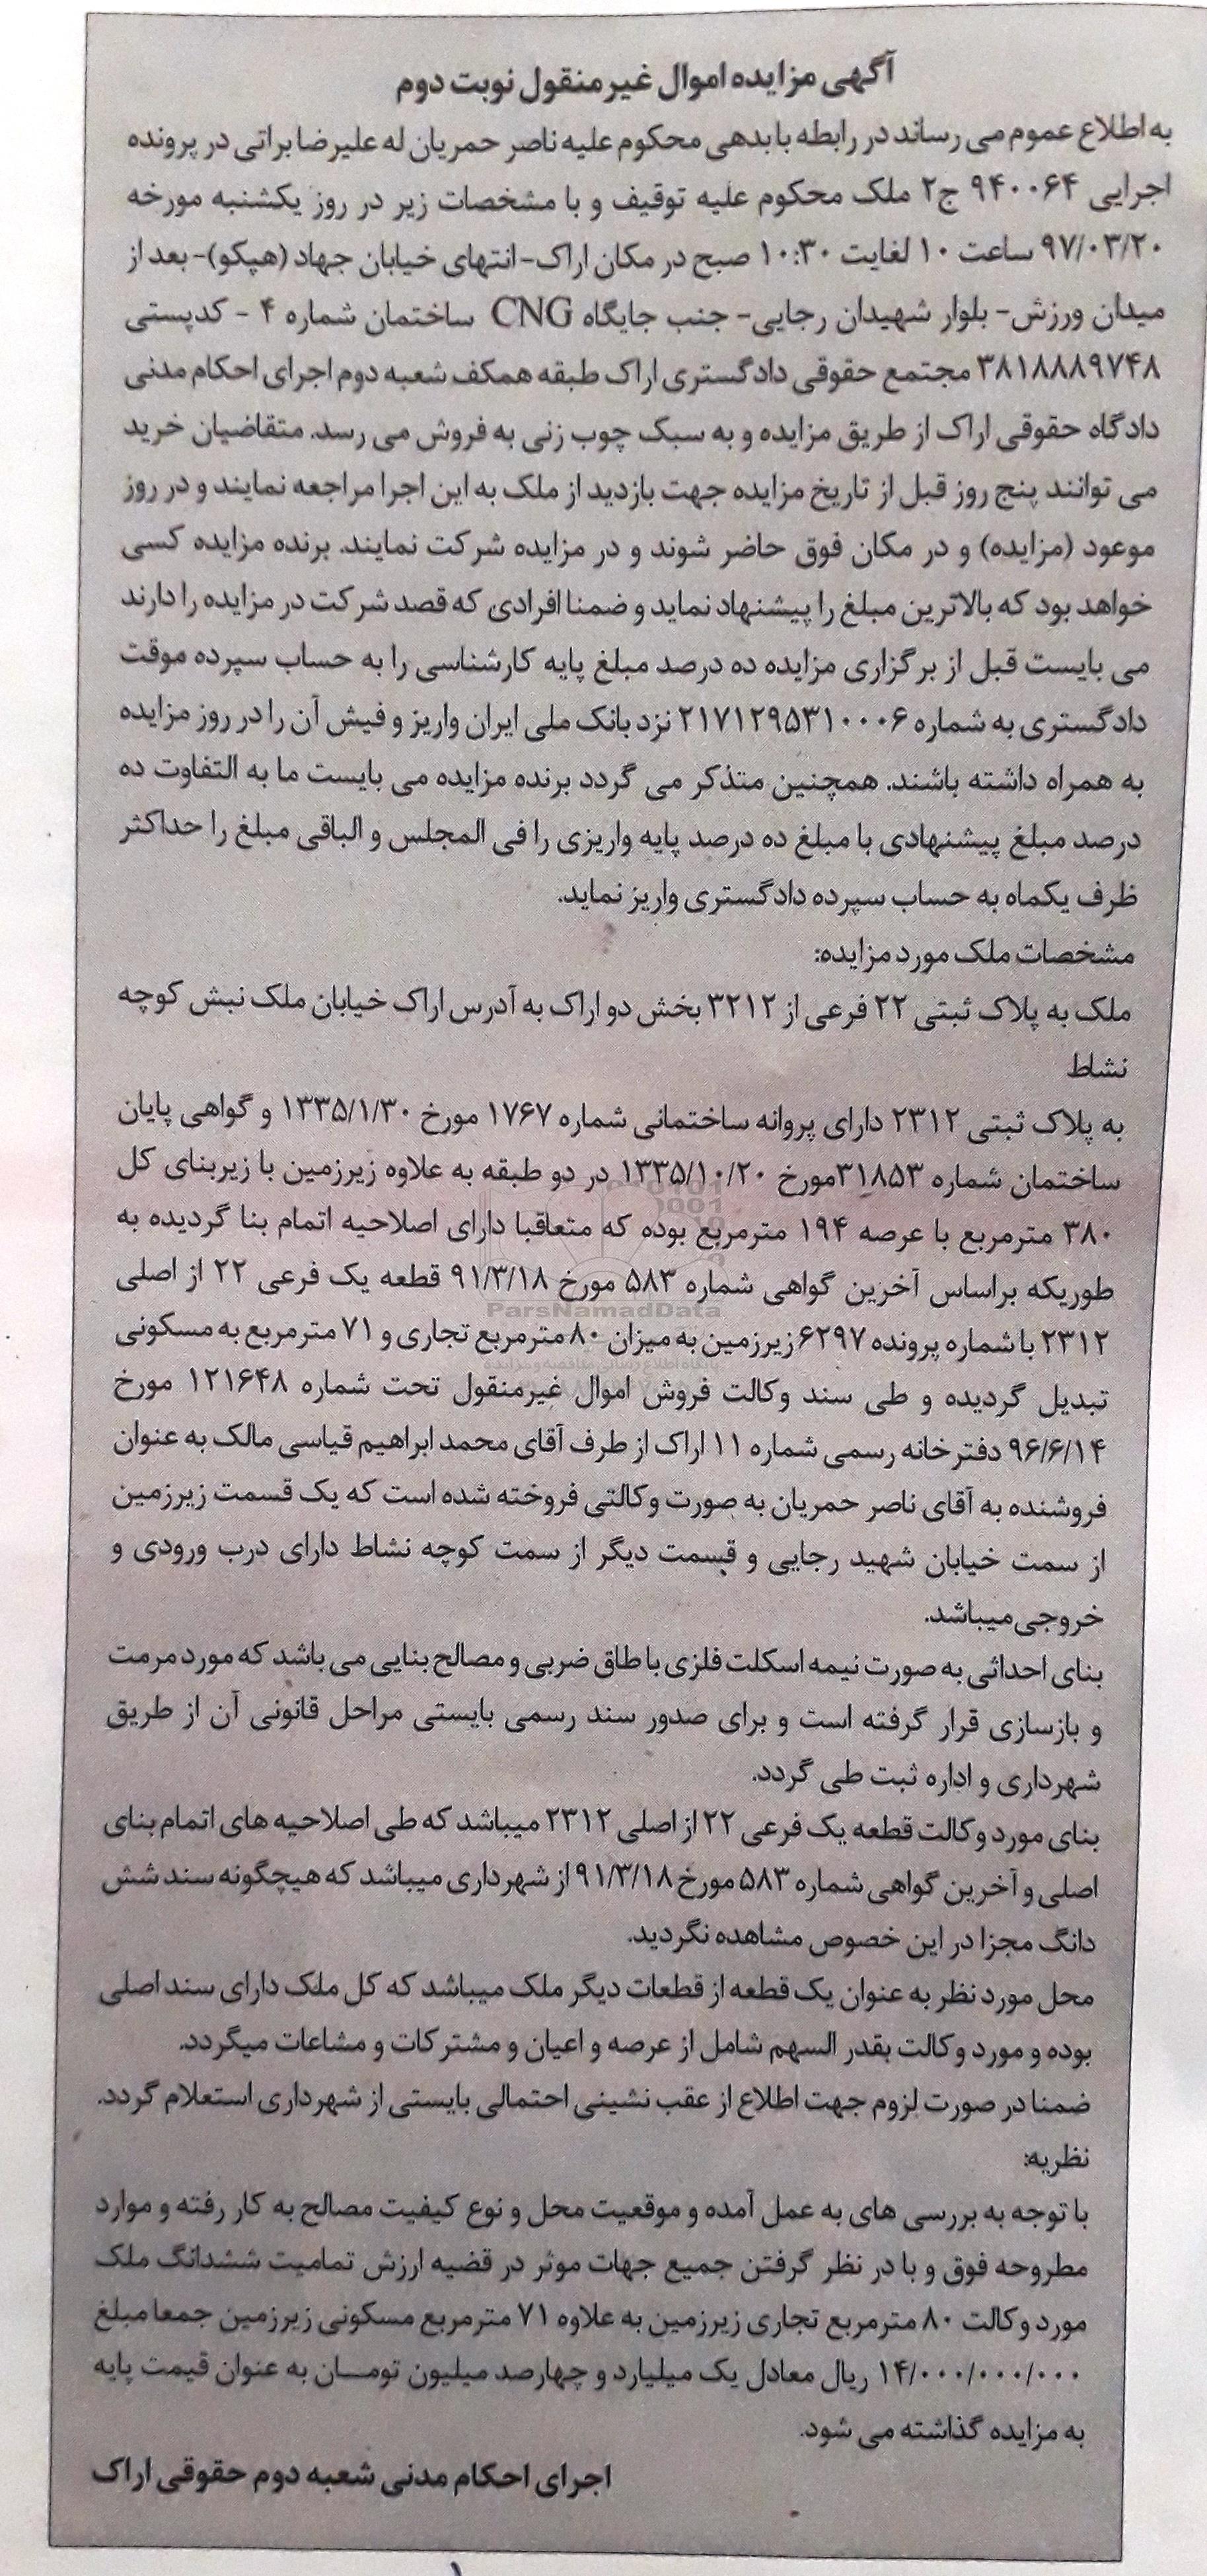 آگهی مزایده اموال غیرمنقول نوبت دوم
به اطلاع عموم می رساند در رابطه با بدهی محکوم علیه ناصر حمریان له علیرضا براتی در پرونده
اجرایی ۹۴۰۰۶۴ ج۲ ملک محکوم علیه توقیف و با مشخصات زیر در روز یکشنبه مورخه
۹۷/۰۳/۲۰ ساعت ۱۰ لغایت ۱۰:۳۰ صبح در مکان اراک- انتهای خیابان جهاد (هپکو)- بعد از
میدان ورزش- بلوار شهیدان رجایی- جنب جایگاه CNG ساختمان شماره ۴ - کدپستی
۳۸۱۸۸۸۹۷۴۸ مجتمع حقوقی دادگستری اراک طبقه همکف شعبه دوم اجرای احکام مدنی
دادگاه حقوقی اراک از طریق مزایده و به سبک چوب زنی به فروش می رسد. متقاضیان خرید
می توانند پنج روز قبل از تاریخ مزایده جهت بازدید از ملک به این اجرا مراجعه نمایند و در روز
موعود (مزایده) و در مکان فوق حاضر شوند و در مزایده شرکت نمایند. برنده مزایده کسی
خواهد بود که بالاترین مبلغ را پیشنهاد نماید و ضمنا افرادی که قصد شرکت در مزایده را دارند
می بایست قبل از برگزاری مزایده ده درصد مبلغ پایه کارشناسی را به حساب سپرده موقت
دادگستری به شماره ۲۱۷۱۲۹۵۳۱۰۰۰۶ نزد بانک ملی ایران واریز و فیش آن را در روز مزایده
به همراه داشته باشند. همچنین متذکر می گردد برنده مزایده می بایست ما به التفاوت ده
درصد مبلغ پیشنهادی با مبلغ ده درصد پایه واریزی را فی المجلس و الباقی مبلغ را حداکثر
ظرف یکماه به حساب سپرده دادگستری واریز نماید.
مشخصات ملک مورد مزایده:
ملک به پلاک ثبتی ۲۲ فرعی از ۳۲۱۲ بخش دو اراک به آدرس اراک خیابان ملک نبش کوچه
نشاط
به پلاک ثبتی ۲۳۱۲ دارای پروانه ساختمانی شماره ۱۷۶۷ مورخ ۱۳۳۵/۱/۳۰ و گواهی پایان
ساختمان شماره ۳۱۸۵۳مورخ ۱۳۳۵/۱۰/۲۰ در دو طبقه به علاوه زیرزمین با زیربنای کل
۳۸۰ مترمربع با عرصه ۱۹۴ مترمربع بوده که متعاقبا دارای اصلاحیه اتمام بنا گردیده به
طوریکه براساس آخرین گواهی شماره ۵۸۳ مورخ ۹۱/۳/۱۸ قطعه یک فرعی ۲۲ از اصلی
ParsNamadData
۲۳۱۲ با شماره پرونده ۶۲۹۷ زیرزمین به میزان ۸۰ مترمربع تجاری و ۷۱ مترمربع به مسکونی
پایگاه اطلاع رسانی مناقصه و مزایده
تبدیل گردیده و طی سند وکالت فروش اموال غیرمنقول تحت شماره ۱۲۱۶۴۸ مورخ
۹۶/۶/۱۴ دفترخانه رسمی شماره ۱۱ اراک از طرف آقای محمد ابراهیم قیاسی مالک به عنوان
فروشنده به آقای ناصر حمریان به صورت وکالتی فروخته شده است که یک قسمت زیرزمین
از سمت خیابان شهید رجایی و قسمت دیگر از سمت کوچه نشاط دارای درب ورودی و
خروجی میباشد.
بنای احداثی به صورت نیمه اسکلت فلزی با طاق ضربی و مصالح بنایی می باشد که مورد مرمت
و بازسازی قرار گرفته است و برای صدور سند رسمی بایستی مراحل قانونی آن از طریق
شهرداری و اداره ثبت طی گردد.
بنای مورد وکالت قطعه یک فرعی ۲۲ از اصلی ۲۳۱۲ میباشد که طی اصلاحیه های اتمام بنای
اصلی و آخرین گواهی شماره ۵۸۳ مورخ ۹۱/۳/۱۸ از شهرداری میباشد که هیچگونه سند شش
دانگ مجزا در این خصوص مشاهده نگردید.
محل مورد نظر به عنوان یک قطعه از قطعات دیگر ملک میباشد که کل ملک دارای سند اصلی
بوده و مورد وکالت بقدر السهم شامل از عرصه و اعیان و مشترکات و مشاعات میگردد.
ضمنا در صورت لزوم جهت اطلاع از عقب نشینی احتمالی بایستی از شهرداری استعلام گردد.
نظریه:
با توجه به بررسی های به عمل آمده و موقعیت محل و نوع کیفیت مصالح به کار رفته و موارد
مطروحه فوق و با در نظر گرفتن جمیع جهات موثر در قضیه ارزش تمامیت ششدانگ ملک
مورد وکالت ۸۰ مترمربع تجاری زیرزمین به علاوه ۷۱ مترمربع مسکونی زیرزمین جمعا مبلغ
۱۴/۰۰۰/۰۰۰/۰۰۰ ریال معادل یک میلیارد و چهارصد میلیون تومـــان به عنوان قیمت پایه
به مزایده گذاشته می شود.
اجرای احکام مدنی شعبه دوم حقوقی اراک